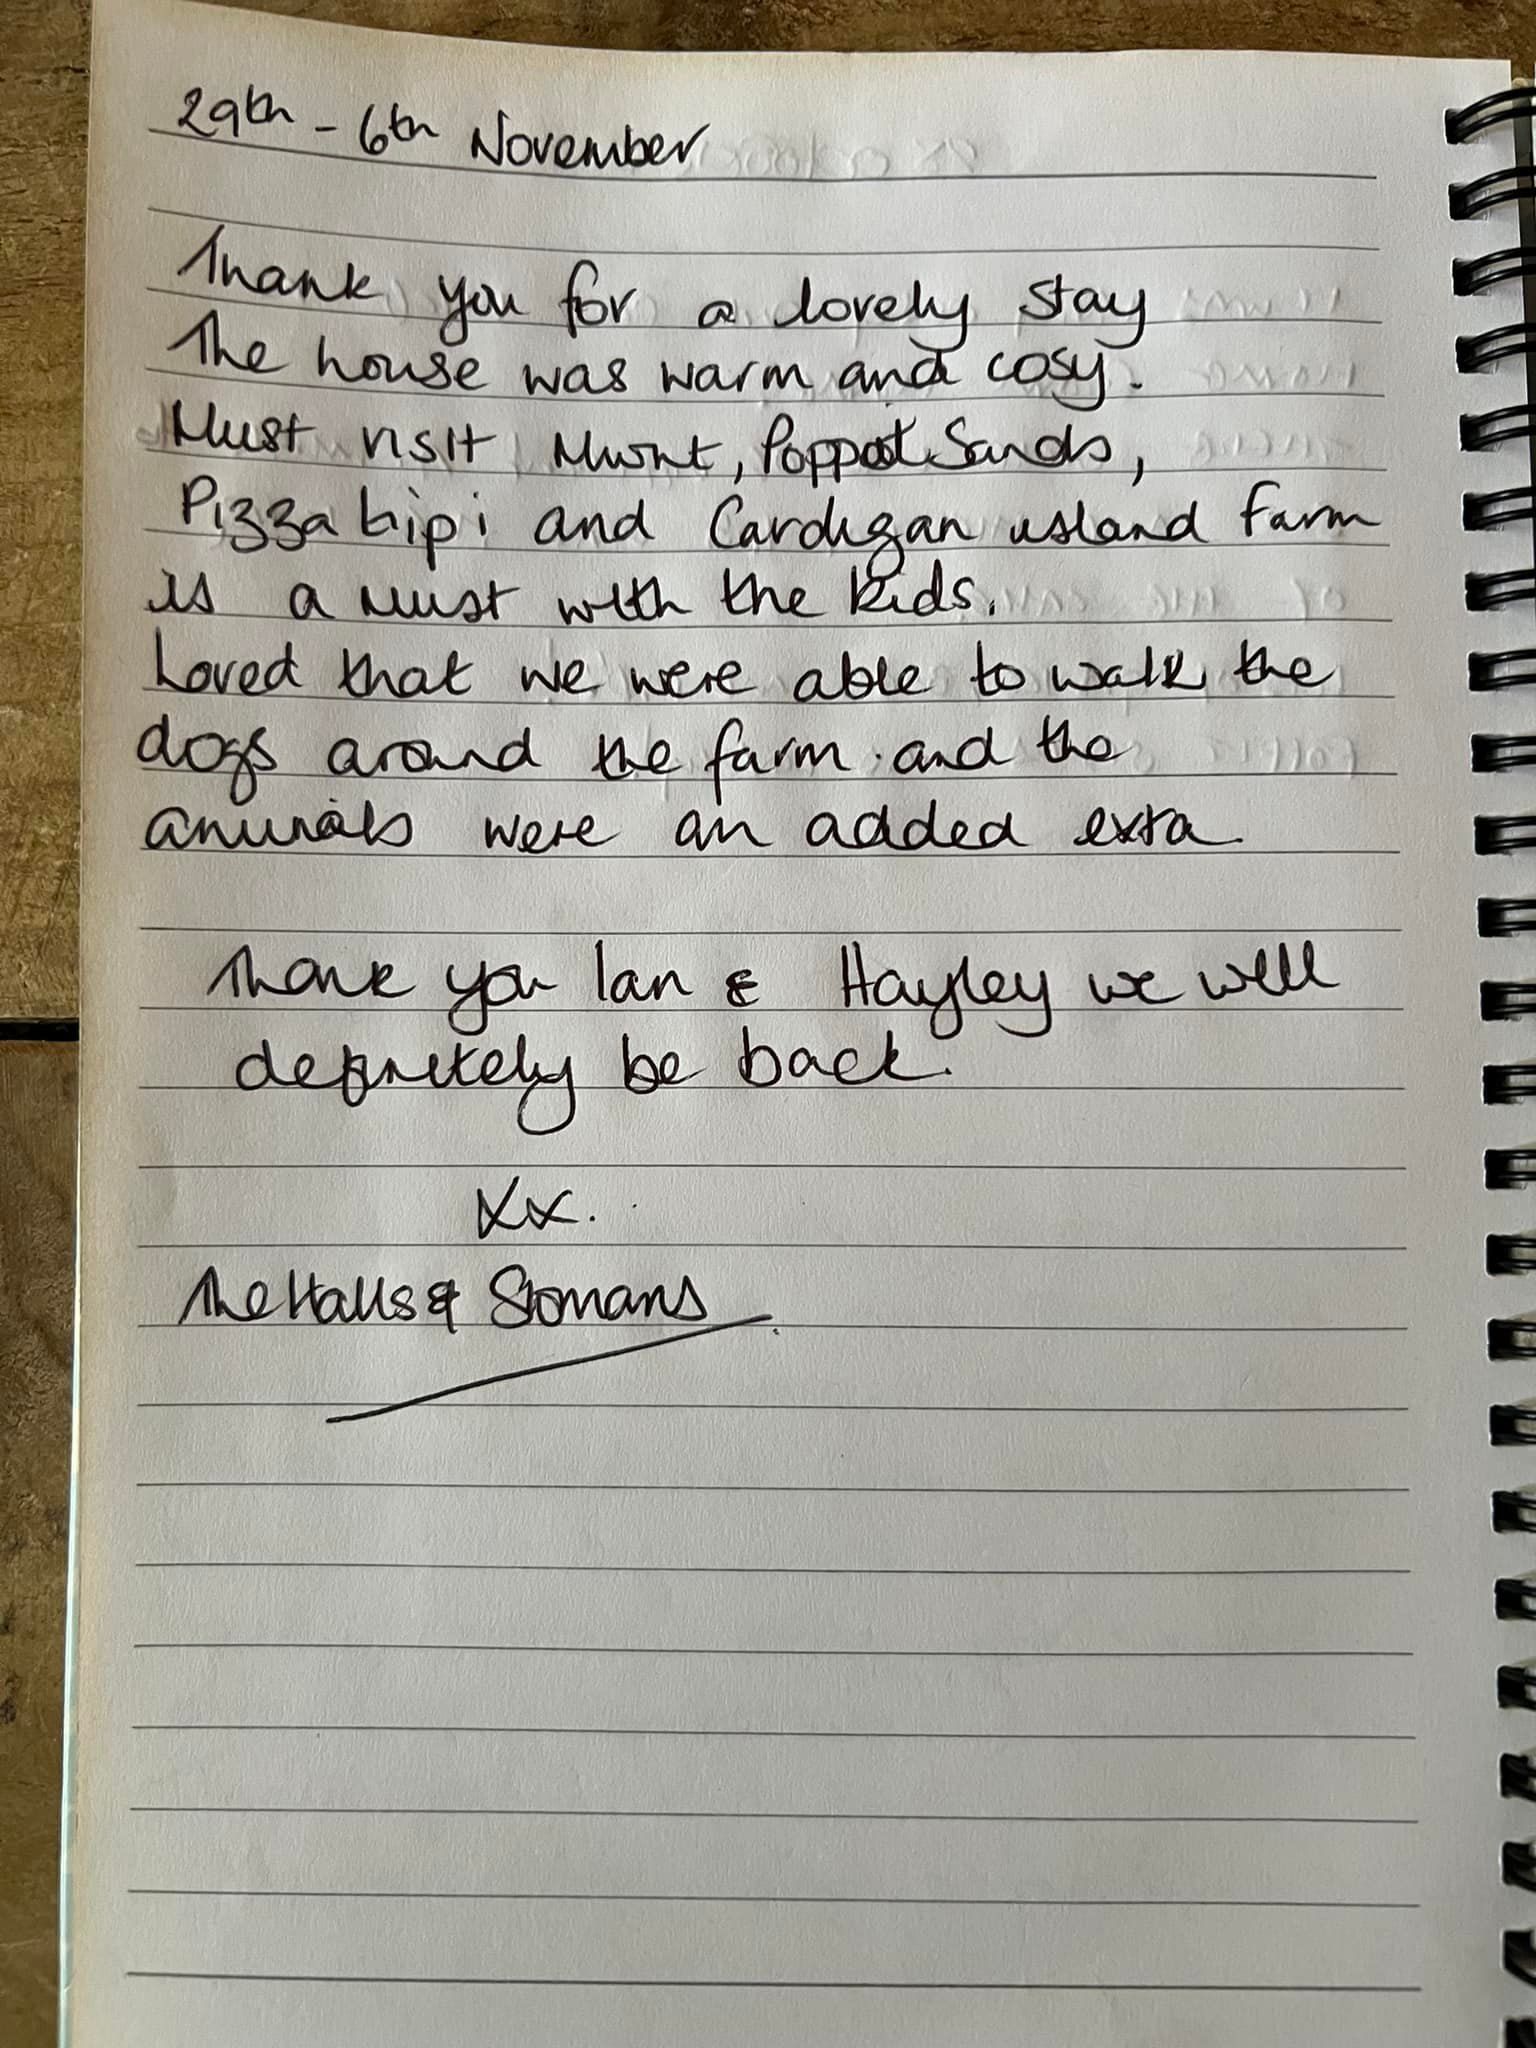 29th - 6th November
Thank you for a lovely stay
The house was warm and cosy.
Must visit Mwnt, Poppit Sands,
Pizza tipi and Cardigan island farm
is a must with the kids.
Loved that we were able to walk the
dogs around the farm. and the
animals were an added extra
Thank you Ian & Hayley we will
definitely be back.
xx.
The Halls &